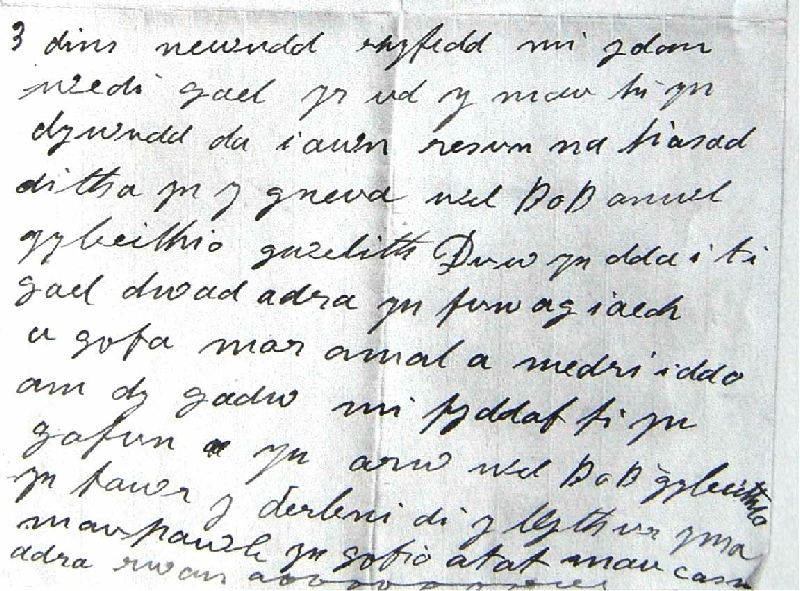 3 dins newudd rhyfedd mi ydam
wedi gael yr ud y mau hi yn
dywudd da i awn resun na hiasad
ditha yn y gneua wel Bob anwl
gybeithio gwelith Duw yn dda i ti
gael dwad adra yn fuw ag iach
a gofa mar amal a medri iddo
am dy gadw mi fyddaf fi yn
gofun yn arw wel Bob gybeithio
yn fawr y derbeni di y llythur yma
mau pawb yn gofio atat mau
adra rwan